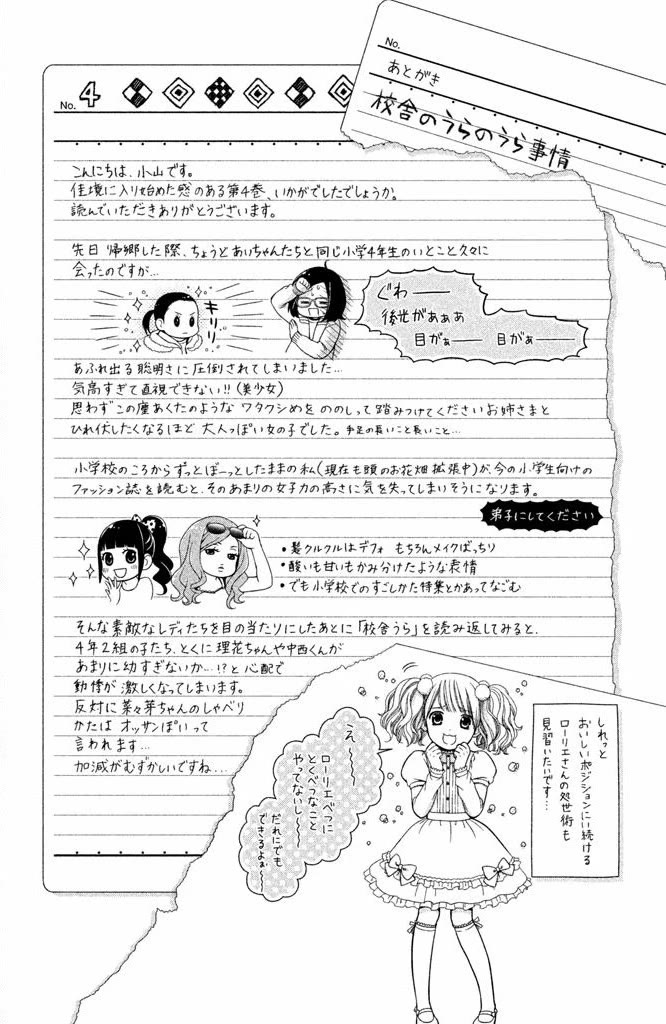 No.
あとがき
校舎のうらのうら事情
No. 4
こんにちは、小山です。
佳境に入り始めた感のある第4巻、いかがでしたでしょうか。
読んでいただきありがとうございます。
先日 帰郷した際、ちょうどあいちゃんたちと同じ小学4年生のいとこと久々に
会ったのですが…
キリリ
ぐわ——
後光がぁぁぁ
目がぁ—— 目がぁ——
あふれ出る聡明さに圧倒されてしまいました…
気高すぎて直視できない!!(美少女)
思わずこの塵あくたのような ワタクシめを ののしって踏みつけてくださいお姉さまと
ひれ伏したくなるほど 大人っぽい女の子でした。手足の長いこと長いこと…
小学校のころからずっとぼーっとしたままの私(現在も頭のお花畑拡張中)が、今の小学生向けの
ファッション誌を読むと、そのあまりの女子力の高さに気を失ってしまいそうになります。
弟子にしてください
・髪クルクルはデフォ もちろんメイクばっちり
・酸いも甘いもかみ分けたような表情
・でも小学校でのすごしかた特集とかあってなごむ
そんな素敵なレディたちを目の当たりにしたあとに「校舎うら」を読み返してみると、
4年2組の子たち、とくに理花ちゃんや中西くんが
あまりに幼すぎないか…!?と心配で
動悸が激しくなってしまいます。
反対に菜々芽ちゃんのしゃべり
かたは オッサンぽいって
言われます…
加減がむずかしいですね…
え〜〜〜
ローリエべつに
とくべつなこと
やってないし〜〜
だれにでも
できるよぉ〜〜
しれっと
おいしいポジションにい続ける
ローリエさんの処世術も
見習いたいです…